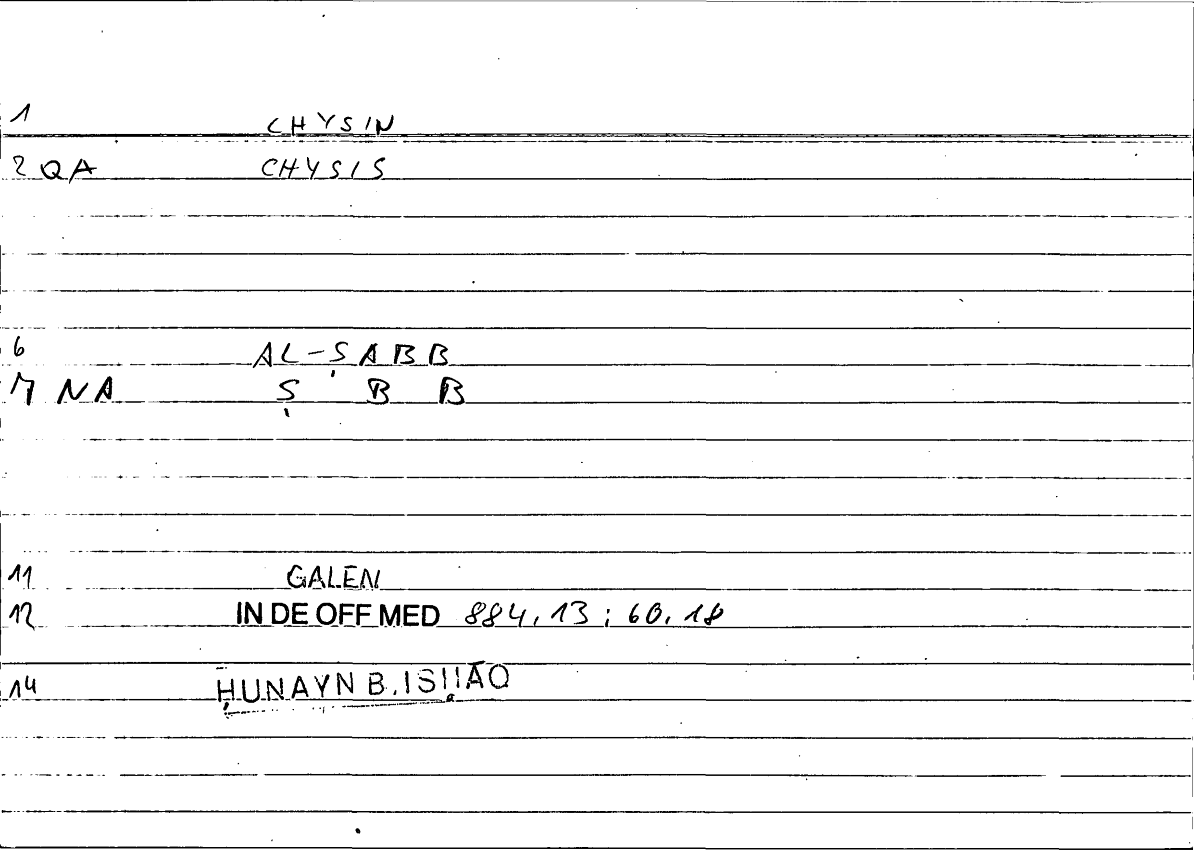 1 CHYSIN
2 QA CHYSIS
6 AL-ṢABB
7 NA Ṣ B B
11 GALEN
12 IN DE OFF MED 884,13; 60,18
14 ḤUNAYN B. ISḤĀQ